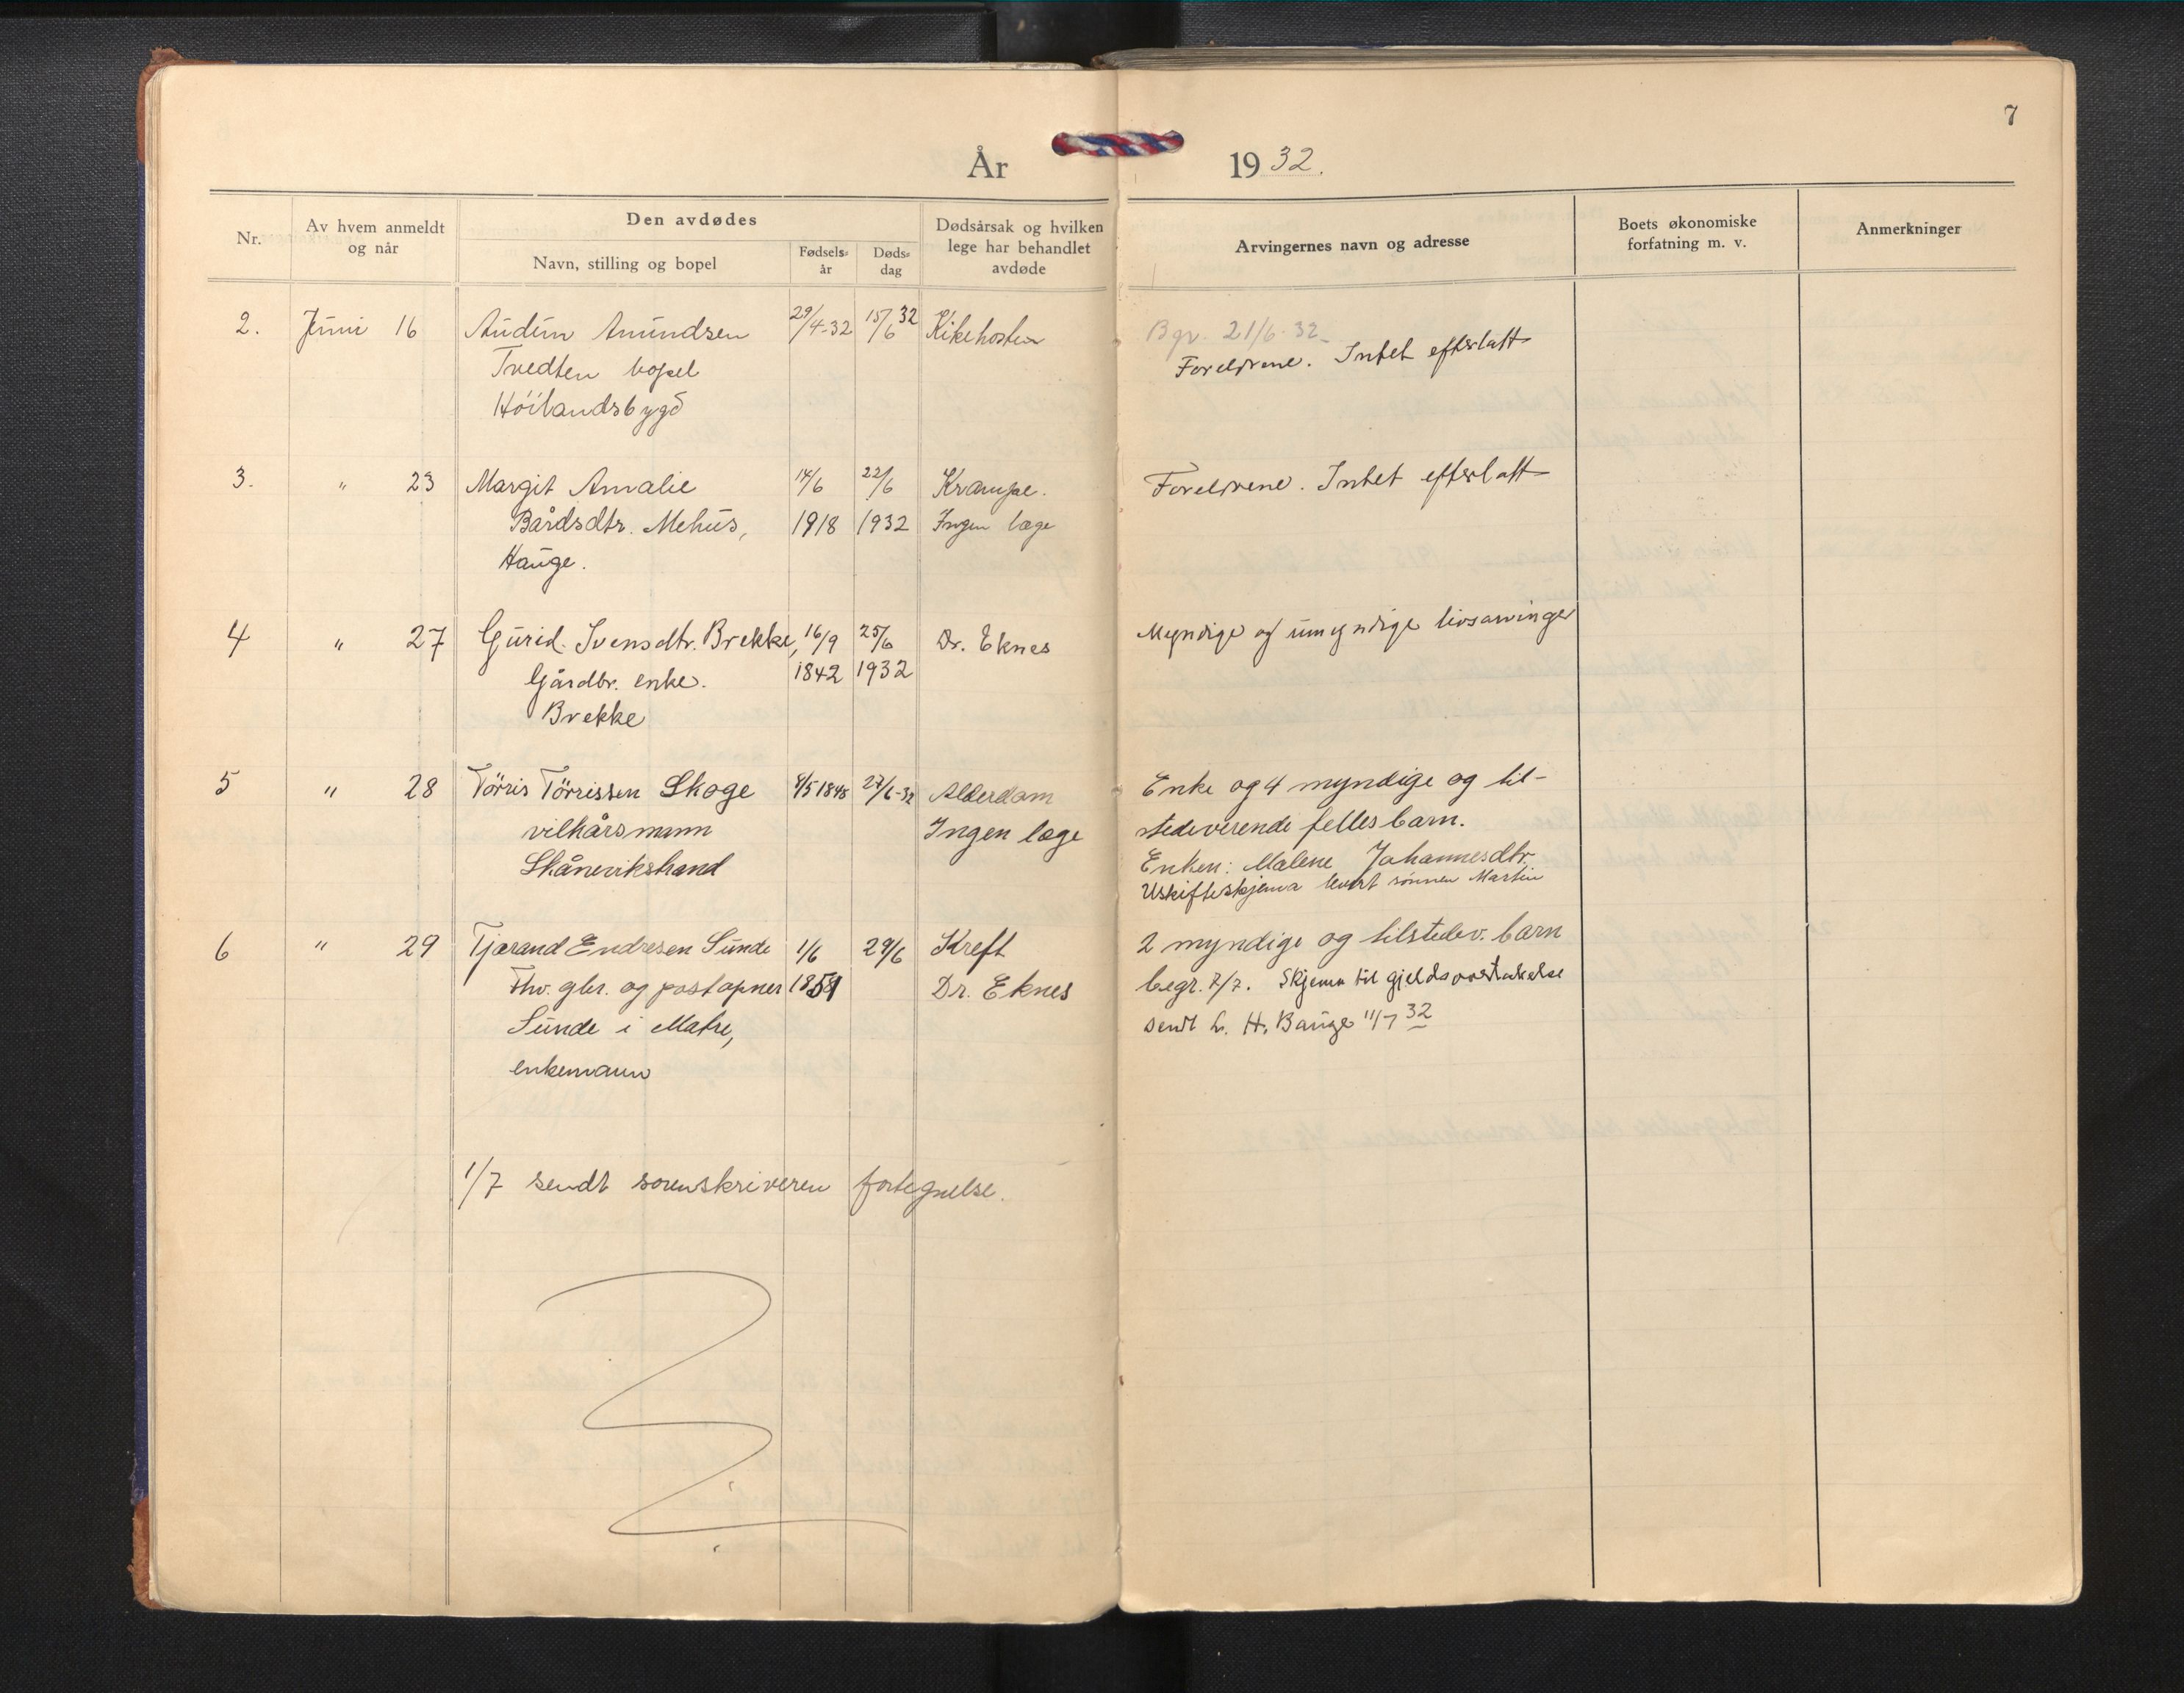 7
År 1932.
Nr.
Av hvem anmeldt
og når
Den avdødes
Navn, stilling og bopel
Fødsels-
år
Døds-
dag
Dødsårsak og hvilken
lege har behandlet
avdøde
Arvingernes navn og adresse
Boets økonomiske
forfatning m. v.
Anmerkninger
2. Juni 16 Audun Amundsen 29/4-32 15/6 32 Kikehosten
Tvedten bopel
Höilandsbygd
Bgr. 21/6-32
Foreldrene. Intet efterlatt
3. " 23 Margit Amalie 14/6 22/6 Krampe. Foreldrene. Intet efterlatt
Bårdsdtr. Mehus, 1918 1932 Ingen læge
Hauge.
4 " 27 Gurid Svensdtr. Brekke, 16/9 25/6 Dr. Eknes Myndige og umyndige livsarvinger
Gårdbr. enke. 1842 1932
Brekke
5 " 28 Törris Törrissen Skoge 8/5 1848 27/6-32 Alderdom Enke og 4 myndige og til-
vilkårsmann Ingen læge stedeverende felles barn.
Skånevikstrand Enken: Malene Johannesdtr.
Uskifteskjema levert sönnen Martin
6 " 29 Tjærand Endresen Sunde 1/6 29/6 Kreft 2 myndige og tilstedev. barn
Fhv. gbr. og postopner 1851 Dr. Eknes begr. 7/7. Skjema til gjeldsovertakelse
Sunde i Matre, sendt L. H. Bauge 11/7 32
enkemann
1/7 sendt sorenskriveren fortegnelse.